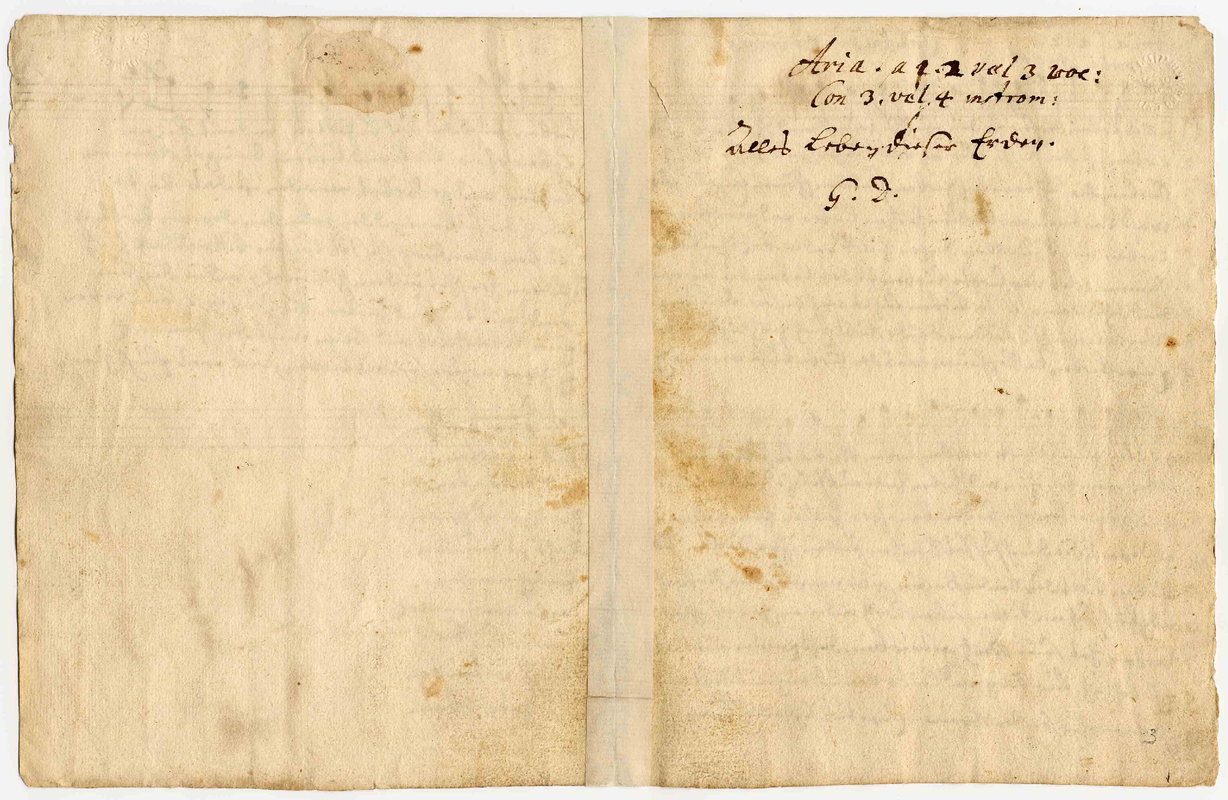 Aria. a 1. 2 vel 3 voc:
Con 3. vel 4 instrom:
Alles Leben dieser Erden.
G. D.
3